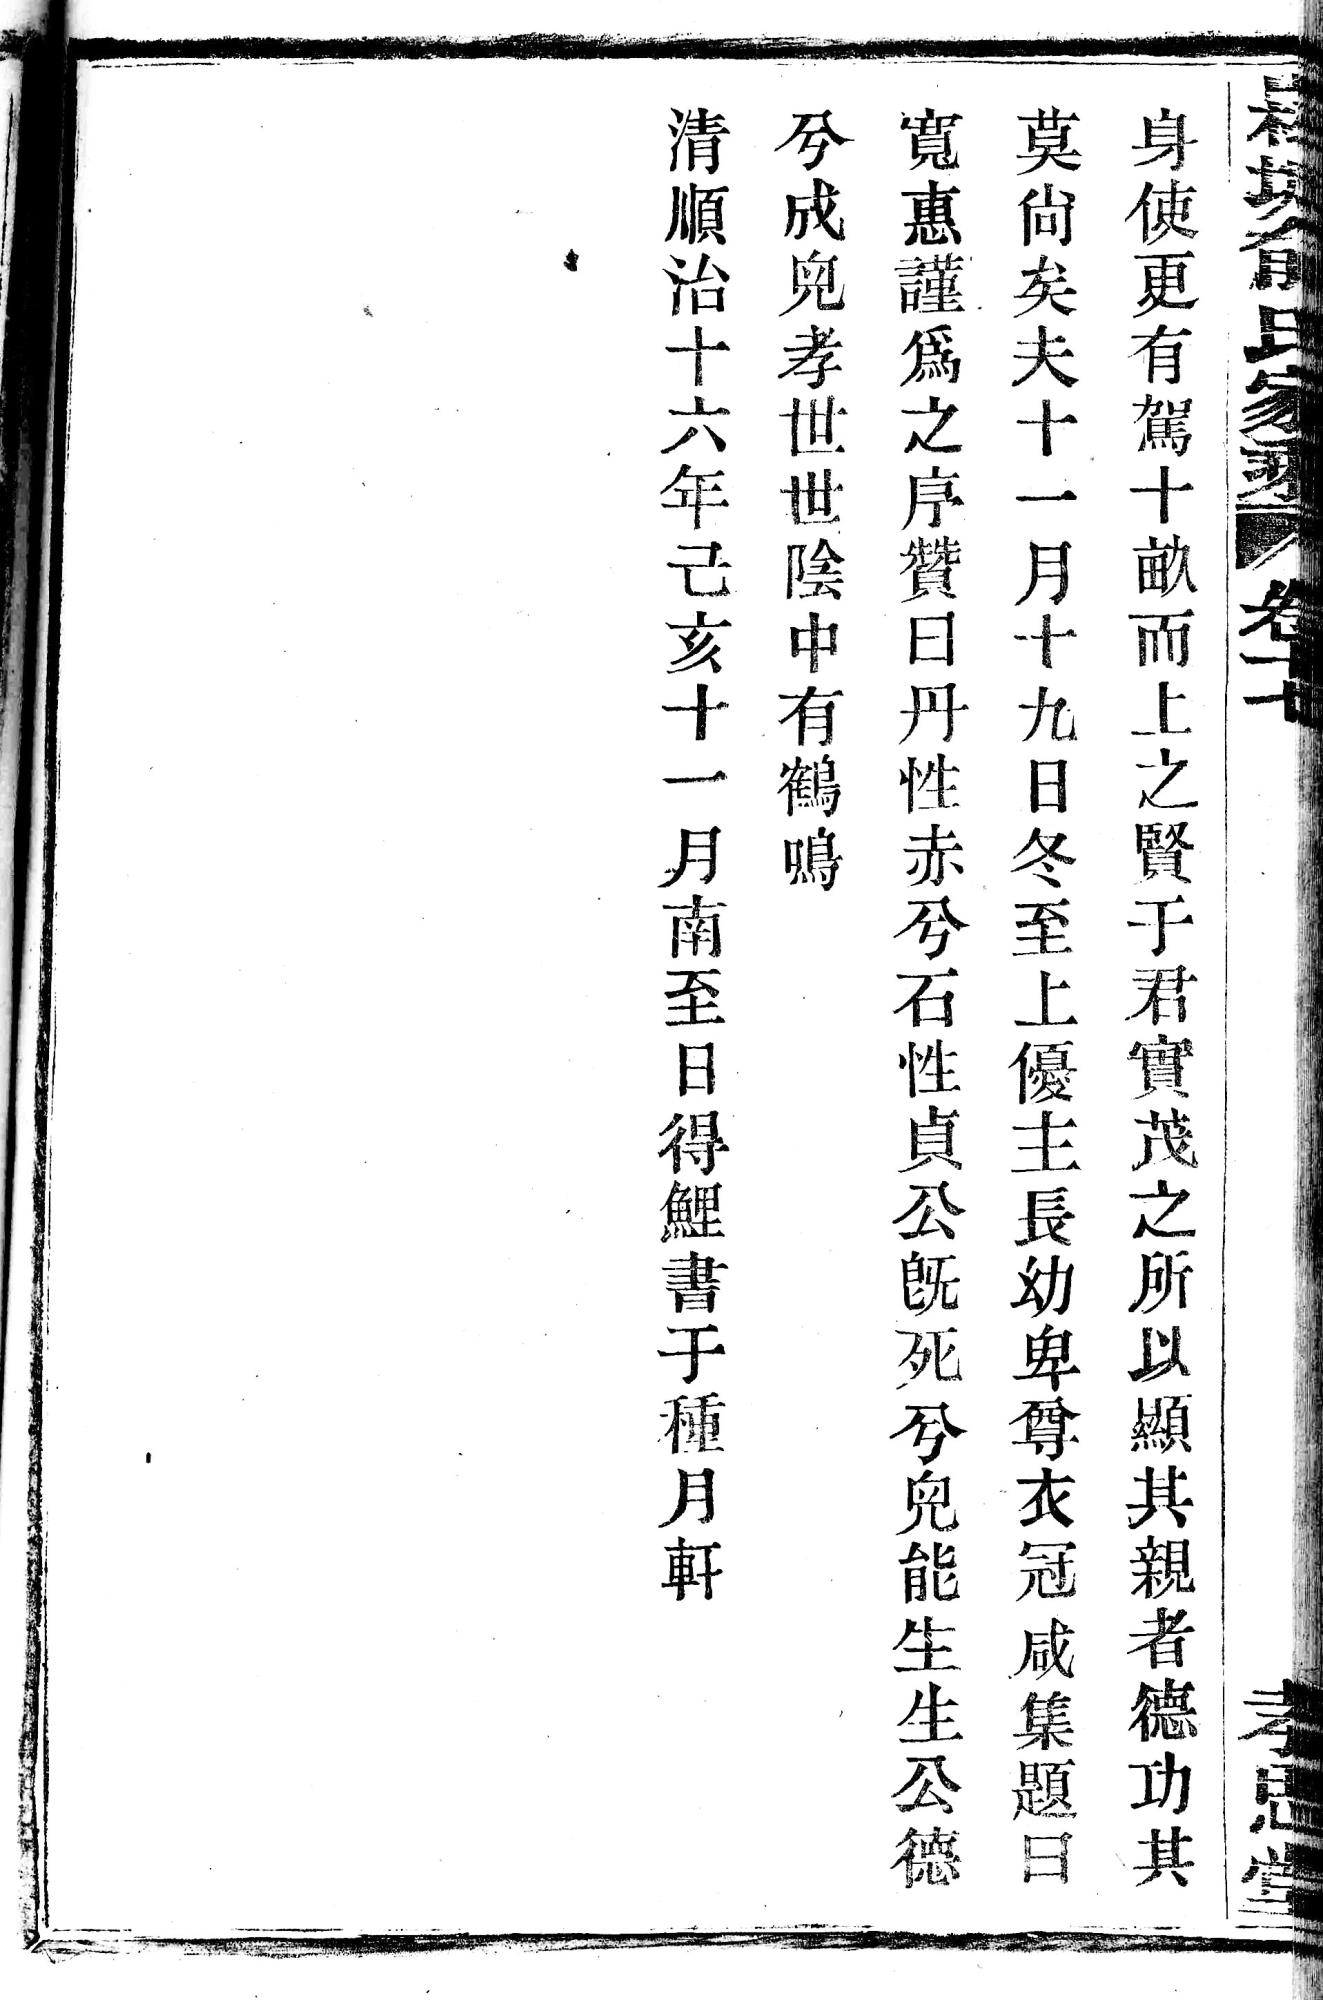 身使更有駕十畝而上之賢于君實茂之所以顯其親者德功其
莫尙矣夫十一月十九日冬至上優主長幼卑尊衣冠咸集題曰
寬惠謹爲之序贊曰丹性赤兮石性貞公旣死兮兒能生生公德
兮成兒孝世世陰中有鶴鳴
清順治十六年己亥十一月南至日得鯉書于種月軒
氏家乘 卷十七 孝思堂